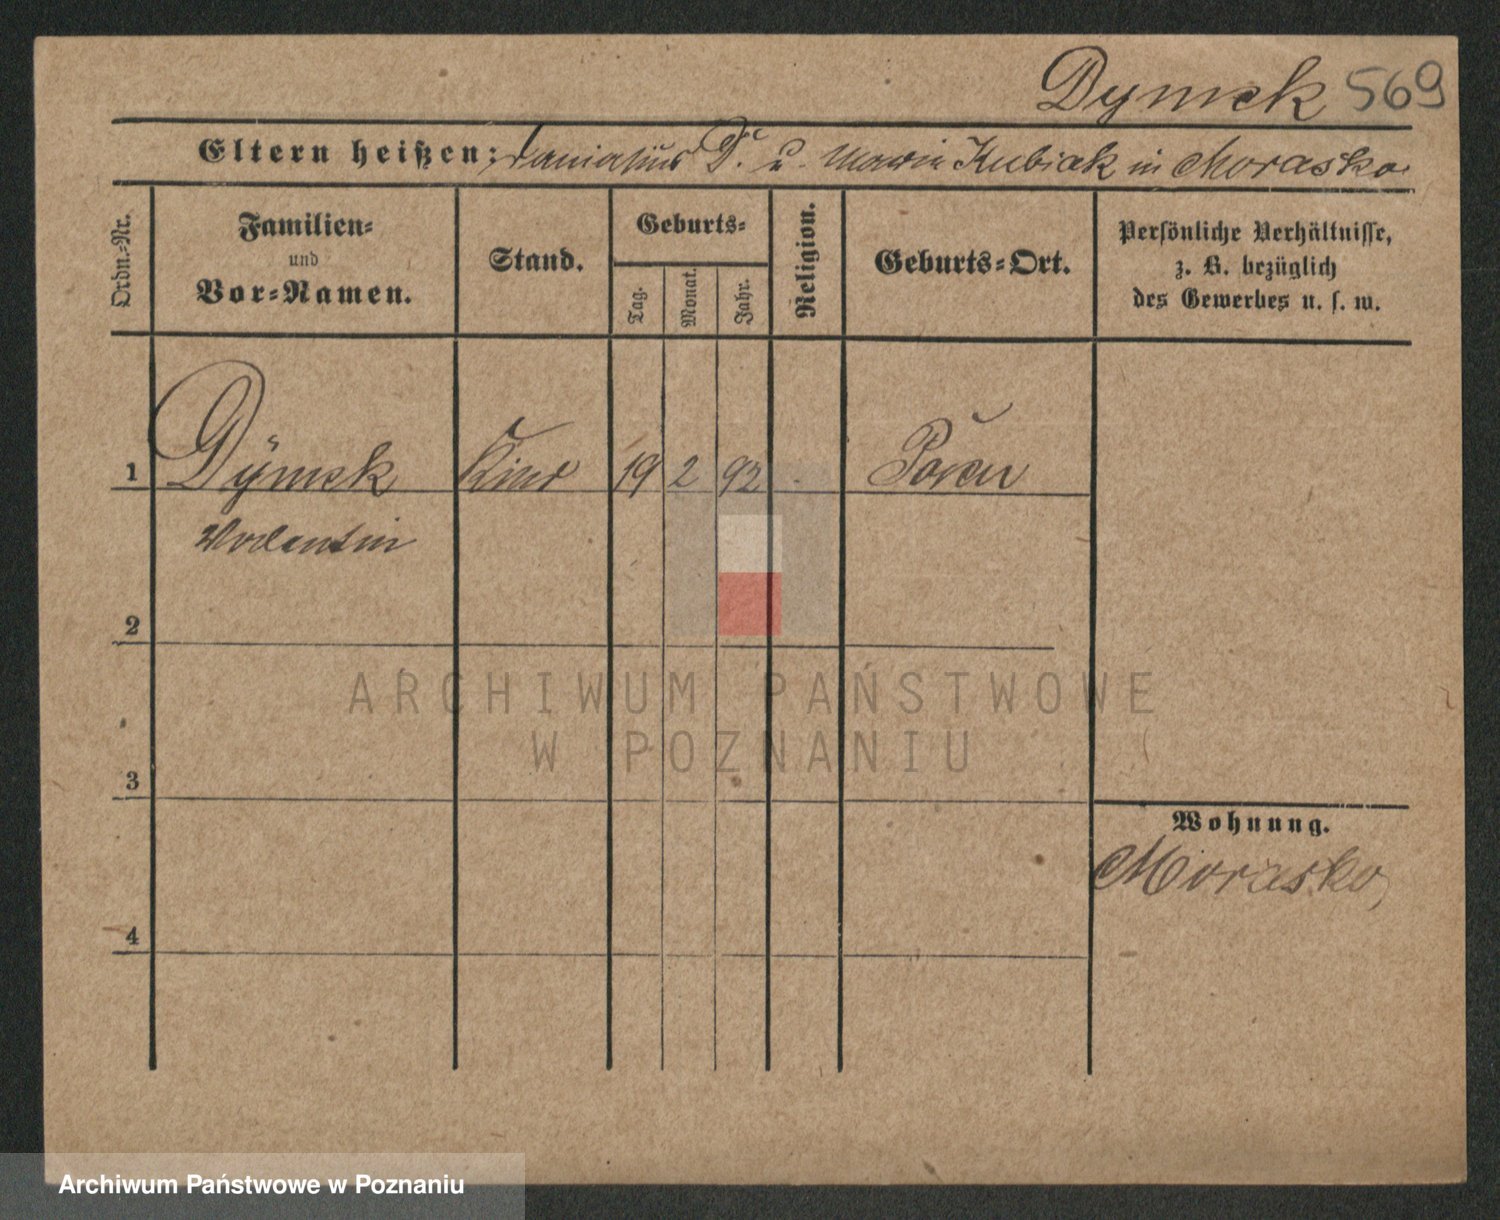 Dymek 569
Eltern heißen: D. u. Maria Kubiak in Morasko
Ordn.-Nr.
Familien-
und
Vor-Namen.
Stand.
Geburts-
Tag.
Monat.
Jahr.
Religion.
Geburts-Ort.
Persönliche Verhältnisse,
z. B. bezüglich
des Gewerbes u. s. w.
1 Dymek Kind 19 2 92 Posen
Valentin
2
ARCHIWUM PAŃSTWOWE
W POZNANIU
3
Wohnung.
Morasko
4
Archiwum Państwowe w Poznaniu